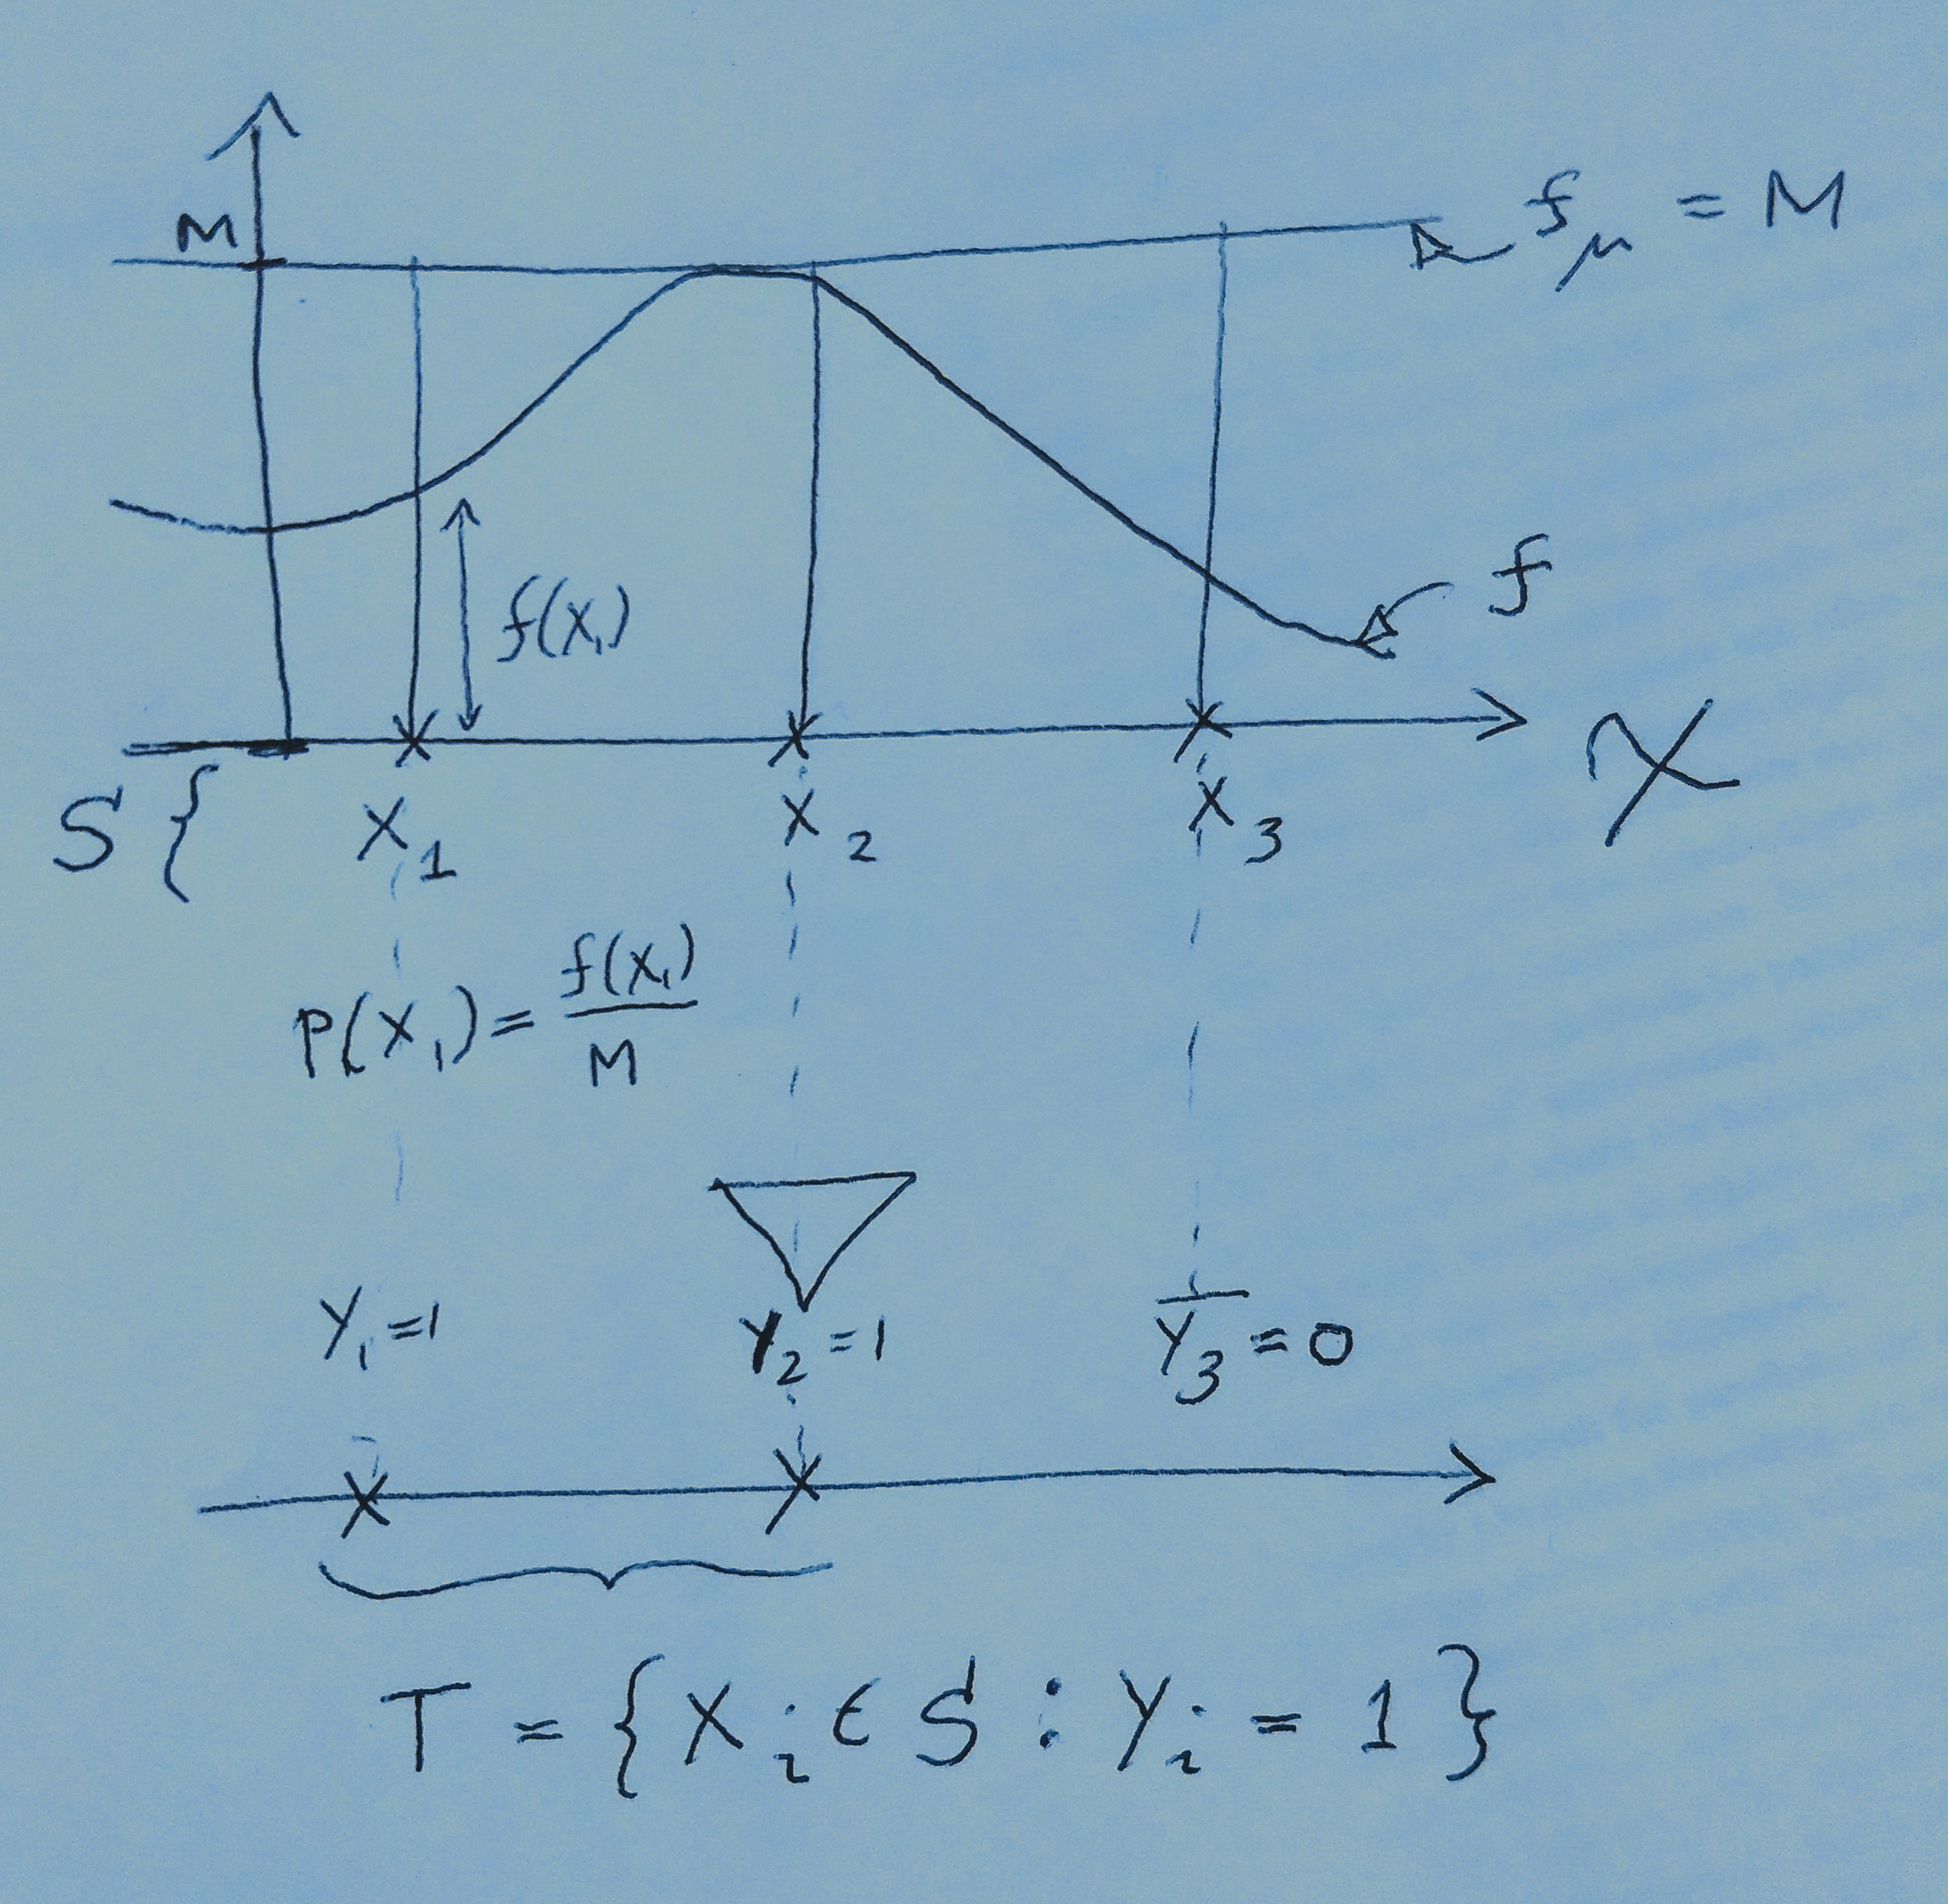 M
f_μ = M
f(x₁)
f
S {
X₁
X₂
X₃
𝒳
P(X₁) = f(x₁)/M
Y₁ = 1
Y₂ = 1
Y₃ = 0
T = { X_i ∈ S : Y_i = 1 }